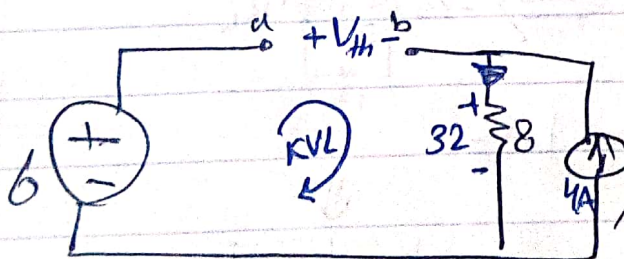 a + V_th - b
+
-
6
KVL
+
32
8
-
4A